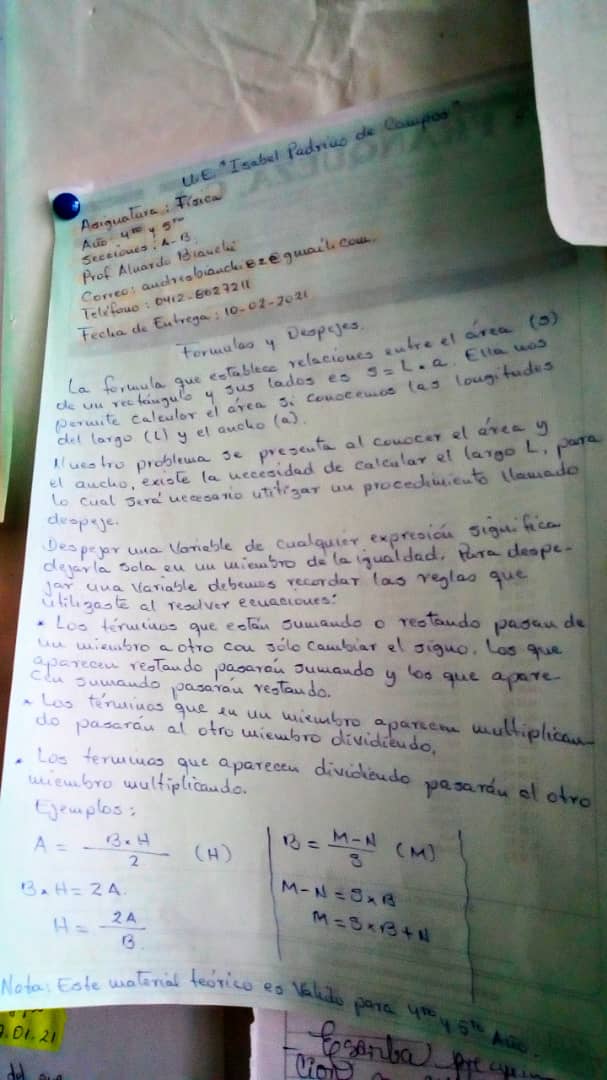 U.E. "Isabel Padrino de Campos"
Asignatura: Física
Año: 4to y 5to
Secciones: A-B.
Prof Alvardo Bianchi
Correo: andresbianchi82@gmail.com.
Teléfono: 0412-8627211
Fecha de Entrega: 10-02-2021
Formulas y Despejes.
La formula que establece relaciones entre el área (s)
de un rectángulo y sus lados es S=L.a. Ella nos
permite calcular el área si conocemos las longitudes
del largo (L) y el ancho (a).
Nuestro problema se presenta al conocer el área y
el ancho, existe la necesidad de calcular el largo L, para
lo cual será necesario utilizar un procedimiento llamado
despeje.
Despejar una Variable de cualquier expresión significa
dejarla sola en un miembro de la igualdad. Para despe-
jar una variable debemos recordar las reglas que
utilizaste al resolver ecuaciones:
* Los términos que están sumando o restando pasan de
un miembro a otro con sólo cambiar el signo. Los que
aparecen restando pasarán sumando y los que apare-
cen sumando pasarán restando.
* Los términos que en un miembro aparecen multiplican-
do pasarán al otro miembro dividiendo,
* Los terminos que aparecen dividiendo pasarán al otro
miembro multiplicando.
Ejemplos:
A = B×H/2 (H)
B×H = 2A.
H = 2A/B.
B = M-N/S (M)
M-N = S×B
M = S×B+N
Nota: Este material teórico es Valido para 4to y 5to Año.
.01.21
del que
Escriba
ción